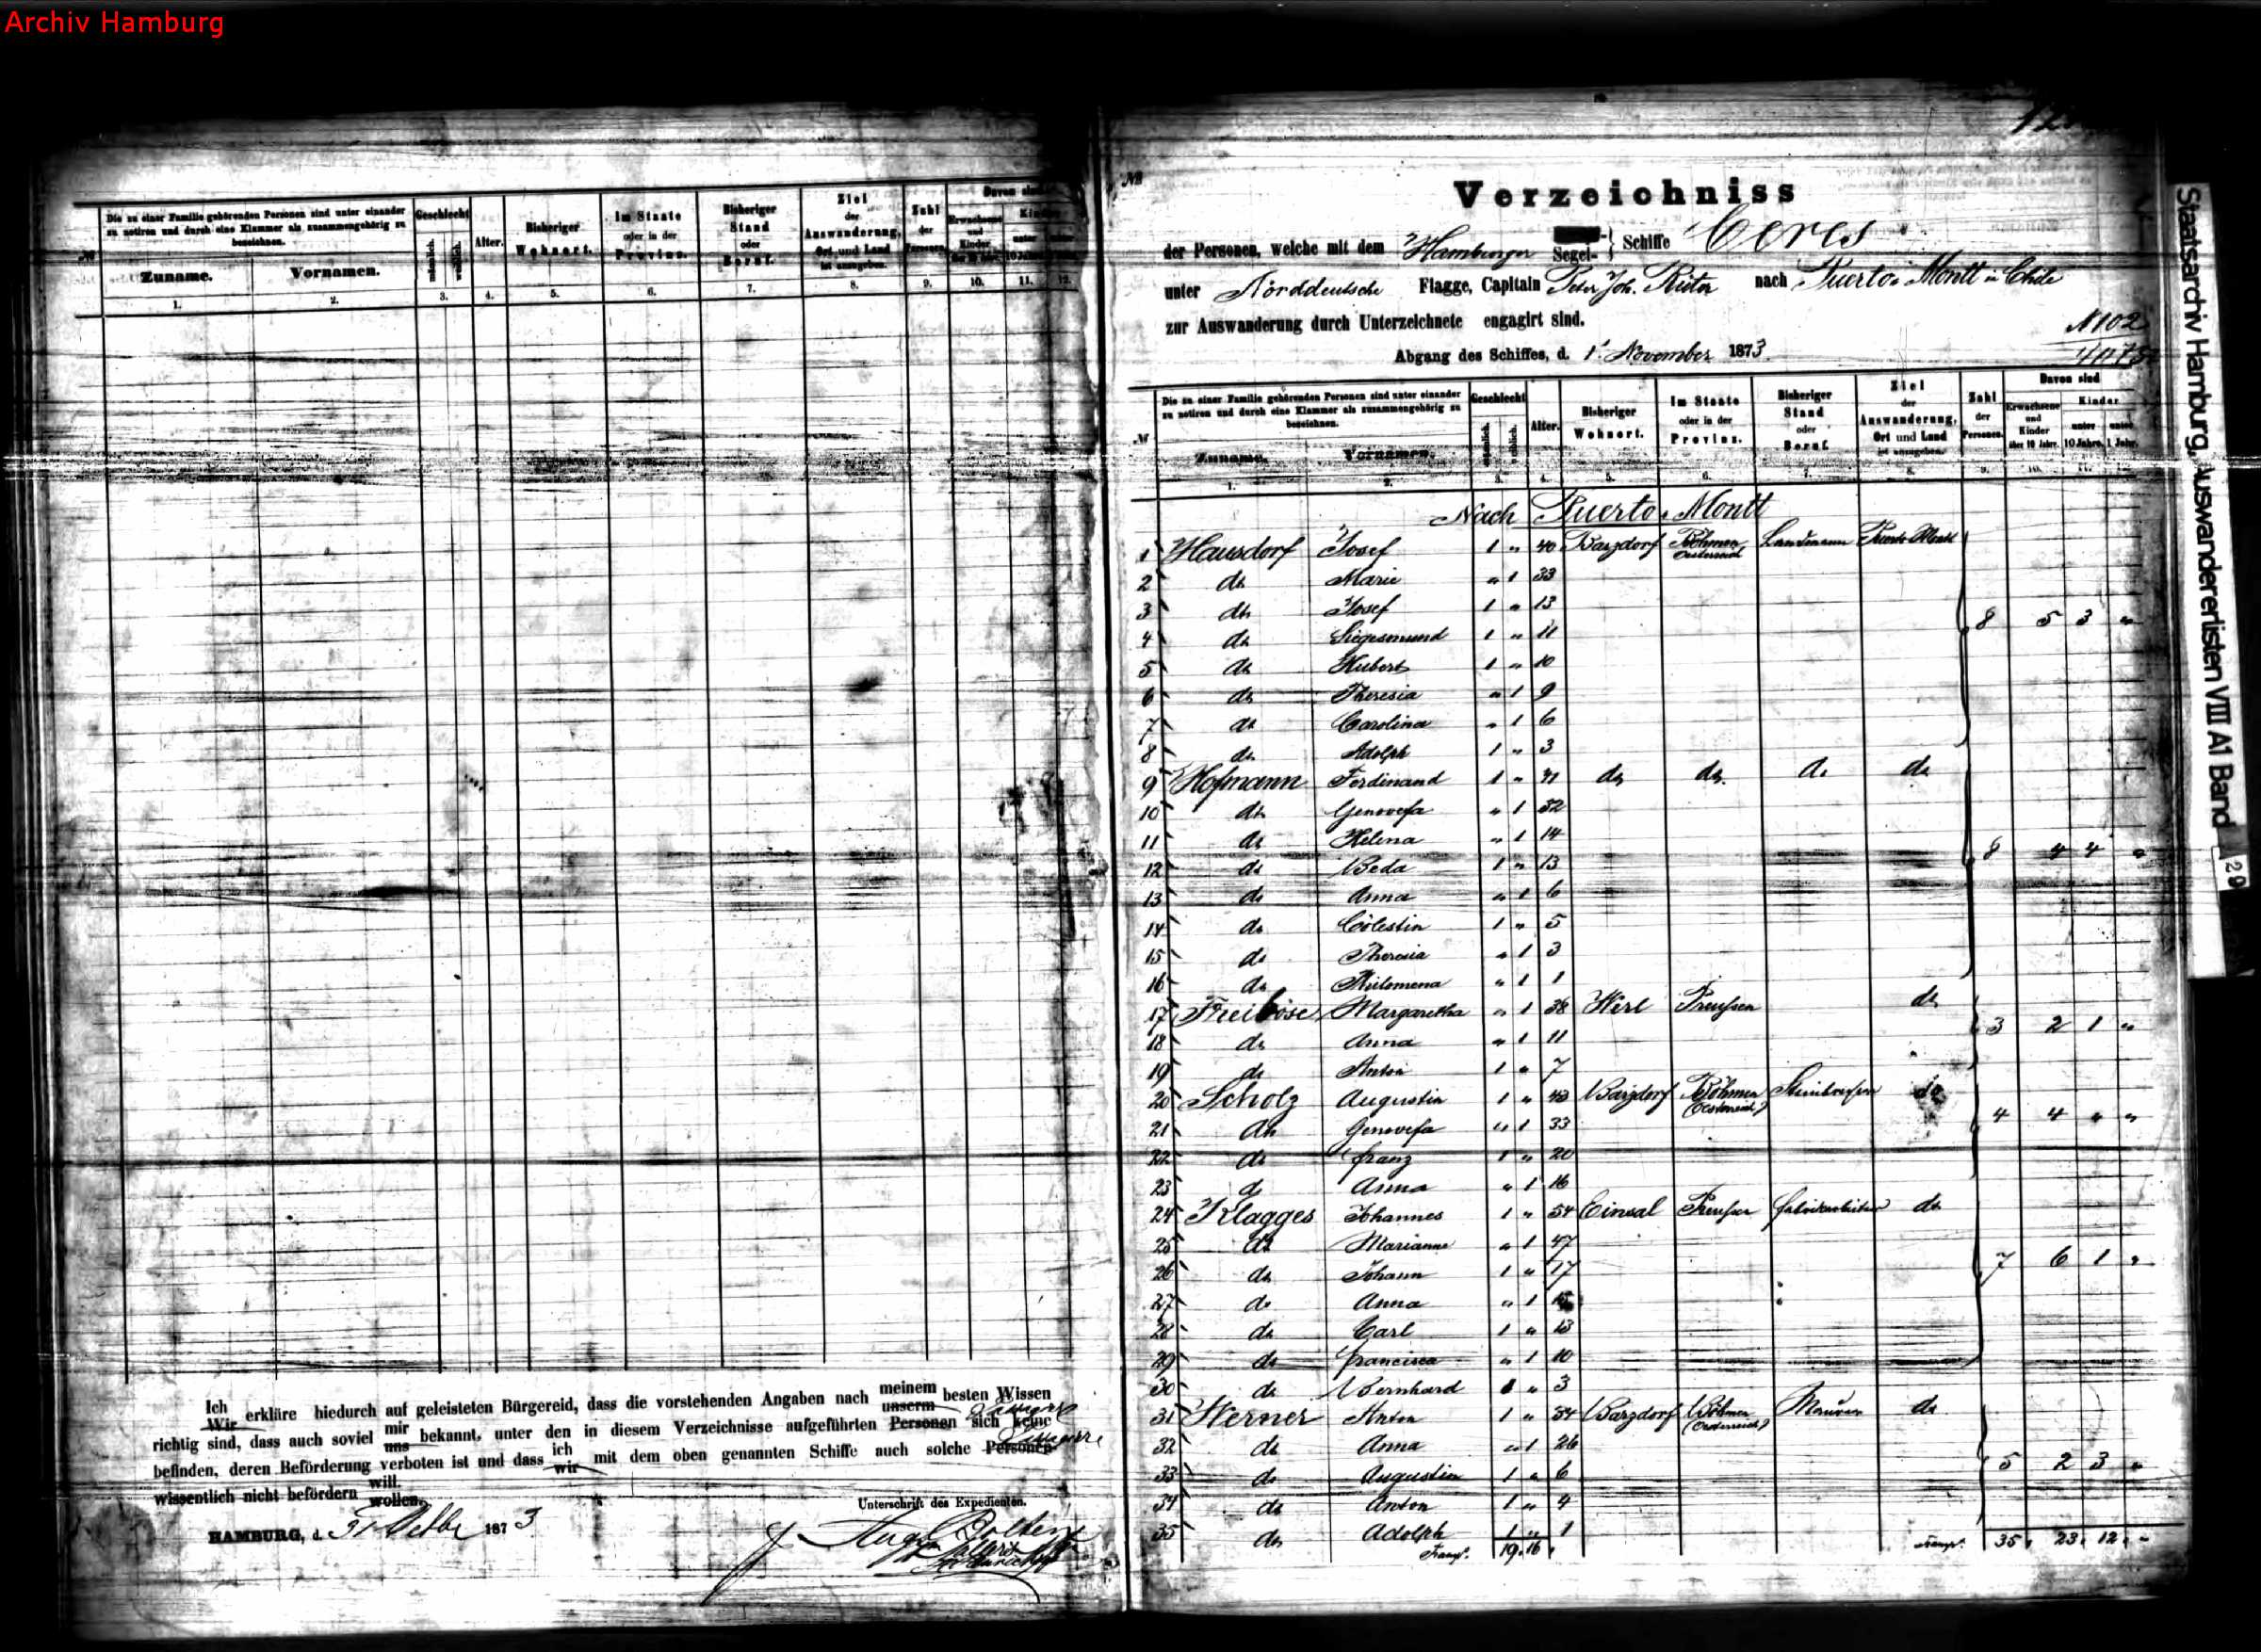 Archiv Hamburg
Die zu einer Familie gehörenden Personen sind unter einander
zu notiren und durch eine Klammer als zusammengehörig zu
bezeichnen.
Zuname. Vornamen.
Geschlecht
männlich. weiblich.
Alter.
Bisheriger
Wohnort.
Im Staate
oder in der
Provinz.
Bisheriger
Stand
oder
Beruf.
Ziel
der
Auswanderung,
Ort und Land
ist anzugeben.
Zahl
der
Personen.
Davon sind
Erwachsene
und
Kinder
1. 2. 3. 4. 5. 6. 7. 8. 9. 10. 11. 12.
Ich Wir erkläre hiedurch auf geleisteten Bürgereid, dass die vorstehenden Angaben nach meinem unserm besten Wissen
richtig sind, dass auch soviel mir uns bekannt, unter den in diesem Verzeichnisse aufgeführten Personen sich keine
befinden, deren Beförderung verboten ist und dass ich wir mit dem oben genannten Schiffe auch solche Personen
wissentlich nicht befördern will. wollen.
Unterschrift des Expedienten.
HAMBURG, d. 31 Octbr 1873
Aug. Bolten
№
Verzeichniss
der Personen, welche mit dem Hamburger Segel- Schiffe Ceres
unter Norddeutsche Flagge, Capitain Peter Joh. nach Puerto Montt in Chile
zur Auswanderung durch Unterzeichnete engagirt sind.
N 102
Abgang des Schiffes, d. 1 November 1873.
Die zu einer Familie gehörenden Personen sind unter einander
zu notiren und durch eine Klammer als zusammengehörig zu
bezeichnen.
Zuname. Vornamen.
Geschlecht
männlich. weiblich.
Alter.
Bisheriger
Wohnort.
Im Staate
oder in der
Provinz.
Bisheriger
Stand
oder
Beruf
Ziel
der
Auswanderung,
Ort und Land
ist anzugeben.
Zahl
der
Personen.
Davon sind
Erwachsene
und
Kinder
über 10 Jahre.
Kinder
unter 10 Jahre. unter 1 Jahr.
1. 2. 3. 4. 5. 6. 7. 8. 9. 10. 11.
Nach Puerto Montt
1 Hausdorf Josef 1 " 40 Barzdorf Böhmen Oesterreich Landmann Puerto Montt
2 do Marie " 1 33
3 do Josef 1 " 13
4 do Siegesmund 1 " 11 8 5 3 "
5 do Hubert 1 " 10
6 do Theresia " 1 9
7 do Carolina " 1 6
8 do Adolph 1 " 3
9 Hofmann Ferdinand 1 " 41 do do do do
10 do Genovefa " 1 32
11 do Helena " 1 14
12 do Beda 1 " 13 8 4 4 "
13 do Anna " 1 6
14 do Cölestin 1 " 5
15 do Theresia " 1 3
16 do Philomena " 1 1
17 Freiböse Margaretha " 1 38 Werl Preußen do
18 do Anna " 1 11 3 2 1 "
19 do Anton 1 " 7
20 Scholz Augustin 1 " 43 Barzdorf Böhmen (Oesterreich) do
21 do Genovefa " 1 33 4 4 " "
22 do Franz 1 " 20
23 do Anna " 1 16
24 Klagges Johannes 1 " 54 Einsal Preußen Fabrikarbeiter do
25 do Marianne " 1 47
26 do Johann 1 " 17 7 6 1 "
27 do Anna " 1 15
28 do Carl 1 " 13
29 do Francisca " 1 10
30 do Bernhard 1 " 3
31 Werner Anton 1 " 34 Barzdorf Böhmen (Oesterreich) Maurer do
32 do Anna " 1 26
33 do Augustin 1 " 6 5 2 3 "
34 do Anton 1 " 4
35 do Adolph 1 " 1
Transp. 19. 16. Transp. 35. 23. 12. -
Staatsarchiv Hamburg, Auswandererlisten VIII A1 Band 29